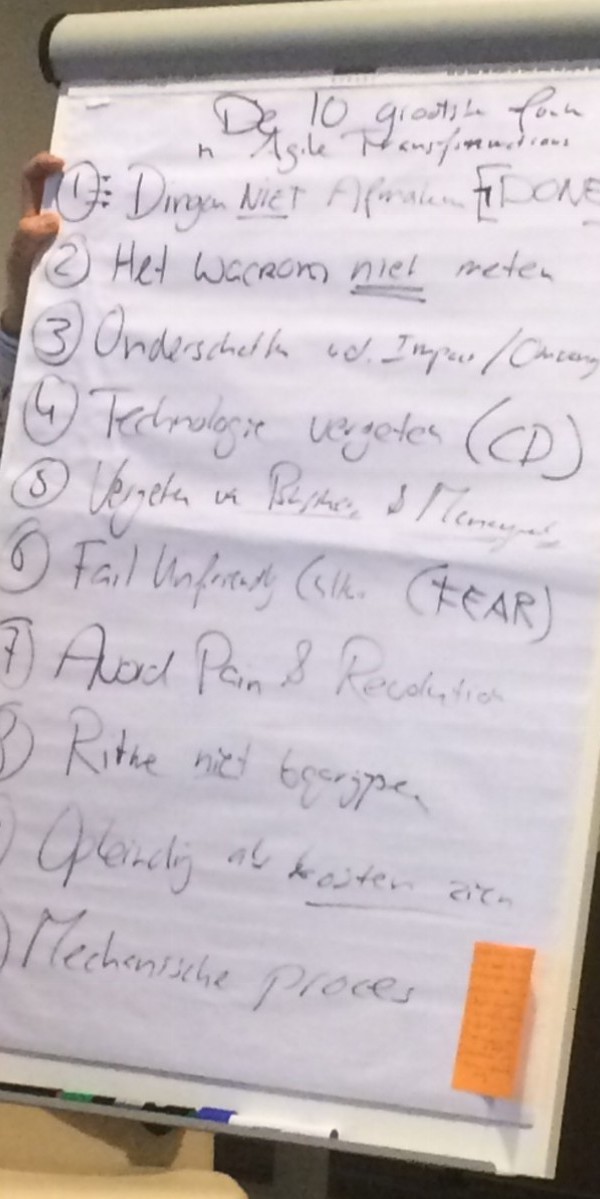 De 10 grootste fouten
in Agile Transformations
①: Dingen NIET Afmaken [DONE
② Het Waarom niet meten
③ Onderschatten vd. Impact / Omvang
④ Technologie vergeten (CD)
⑤ Vergeten vn Business & Management
⑥ Fail Unfriendly (FEAR)
7) Avoid Pain & Revolution
8) Ritme niet begrijpen
) Opleiding als kosten zien
) Mechanische proces